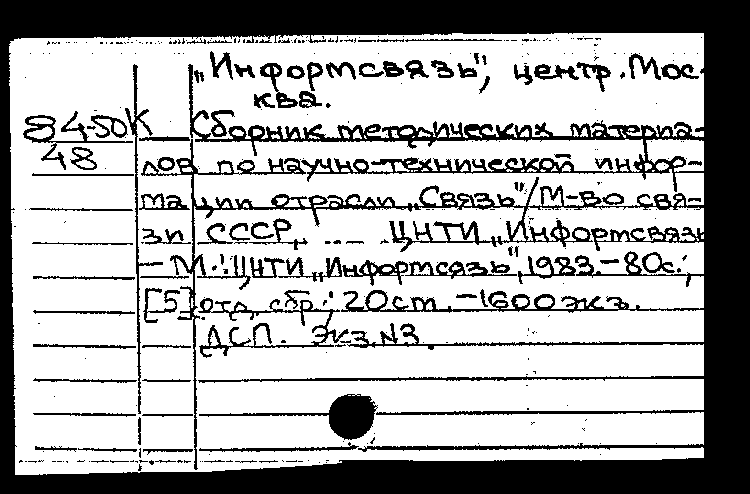 „Информсвязь", центр. Мос-
ква.
84-50К Сборник методических материа-
48 лов по научно-технической инфор-
мации отрасли „Связь"/М-во свя-
зи СССР, ... ЦНТИ „Информсвязь
— М.: ЦНТИ „Информсвязь", 1983.-80с.;
[5] отд. сбр.; 20 см. -1600 экз.
ДСП. Экз. №3.